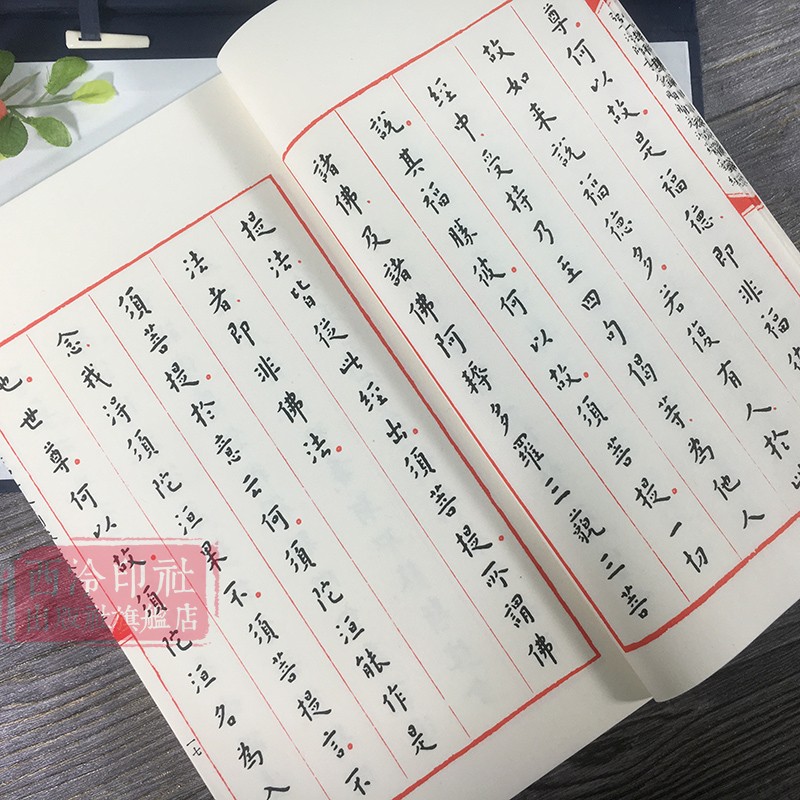 尊何以故。是福德。即非福
故如来說福德多。若復有人。於此
經中。受持乃至四句偈等。為他人
說。其福勝彼。何以故。須菩提。一切
諸佛。及諸佛阿耨多羅三藐三菩
提法。皆從此經出。須菩提。所謂佛
法者。即非佛法。
須菩提。於意云何。須陀洹能作是
念。我得須陀洹果不。須菩提言。不
也。世尊。何以故。須陀洹名為入
一七
西泠印社
旗艦店